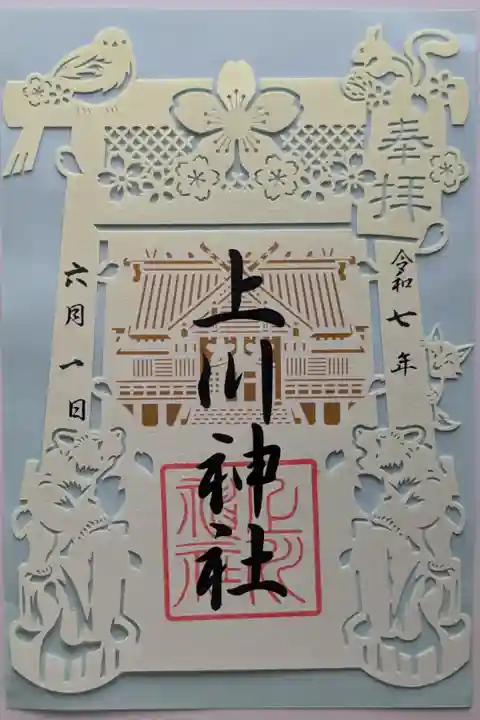 奉拝
令和七年
上川神社
六月一日